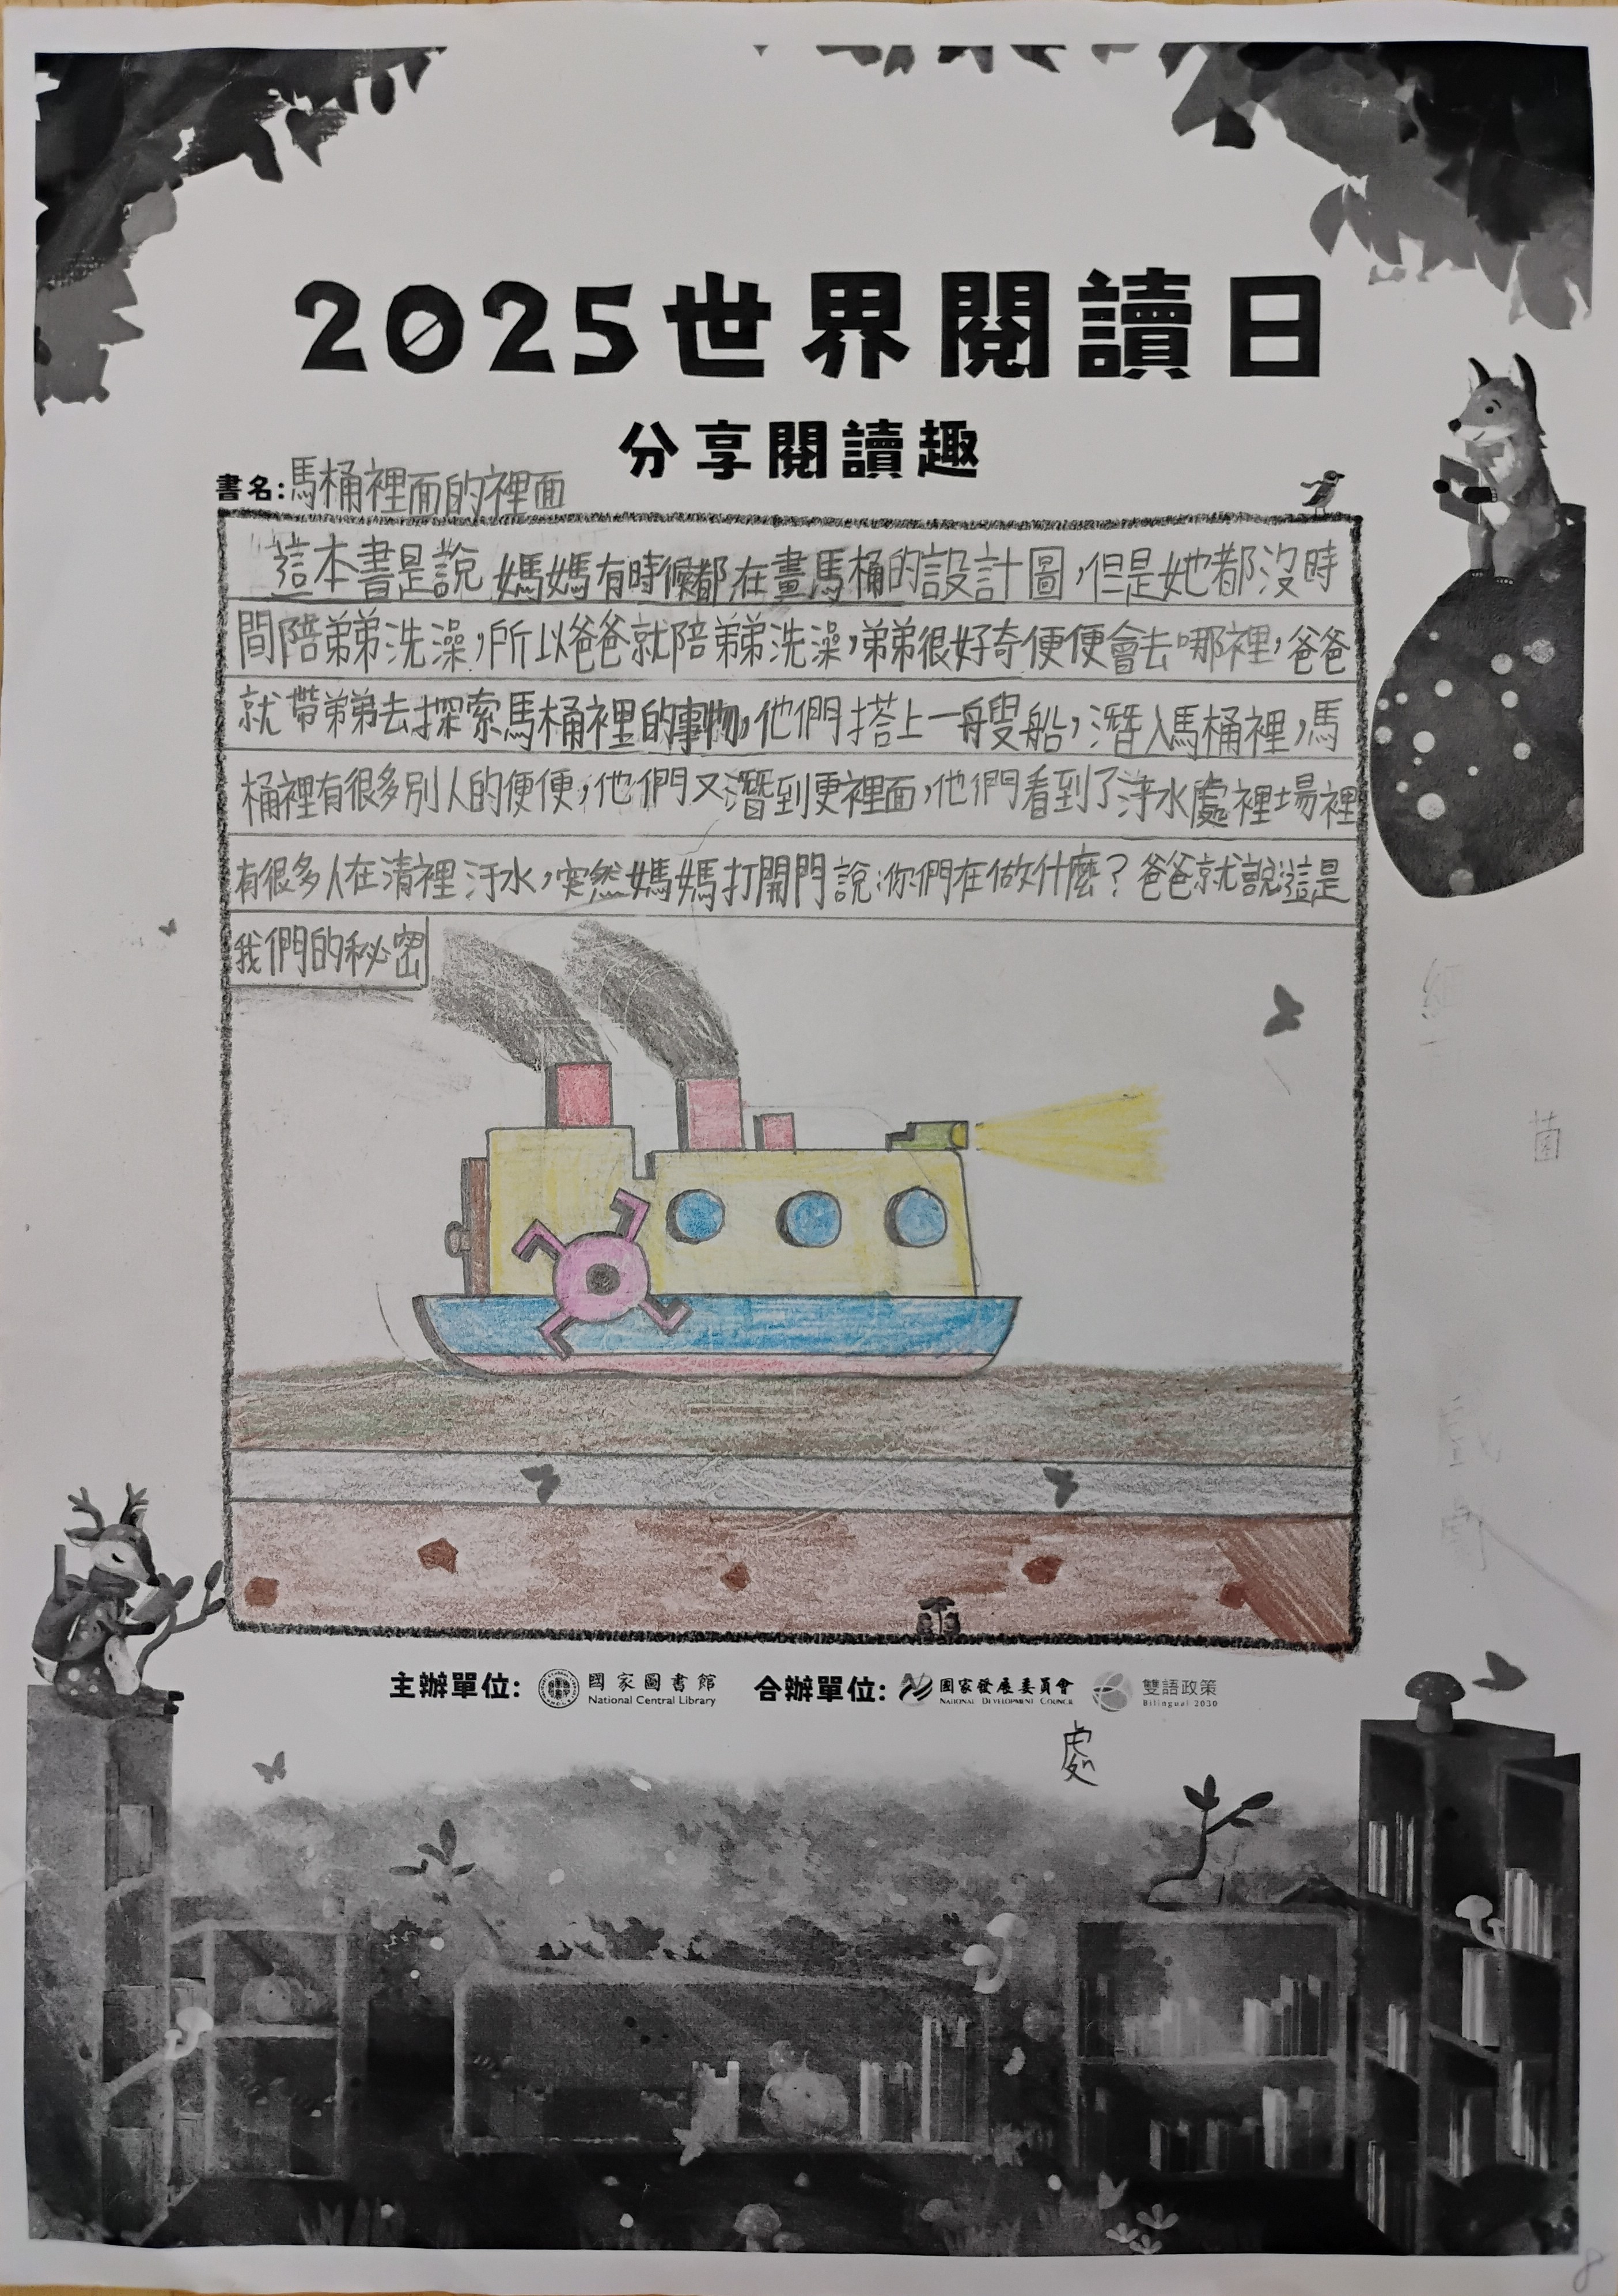 2025世界閱讀日
分享閱讀趣
書名:馬桶裡面的裡面
這本書是說媽媽有時候都在畫馬桶的設計圖,但是她都沒時
間陪弟弟洗澡,所以爸爸就陪弟弟洗澡,弟弟很好奇便便會去哪裡,爸爸
就帶弟弟去探索馬桶裡的事物,他們搭上一艘船,潛入馬桶裡,馬
桶裡有很多別人的便便,他們又潛到更裡面,他們看到了淨水處裡場裡
有很多人在清裡汙水,突然媽媽打開門說:你們在做什麼?爸爸就說這是
我們的秘密
主辦單位: 國家圖書館 National Central Library 合辦單位: 國家發展委員會 NATIONAL DEVELOPMENT COUNCIL 雙語政策 Bilingual 2030
處
8